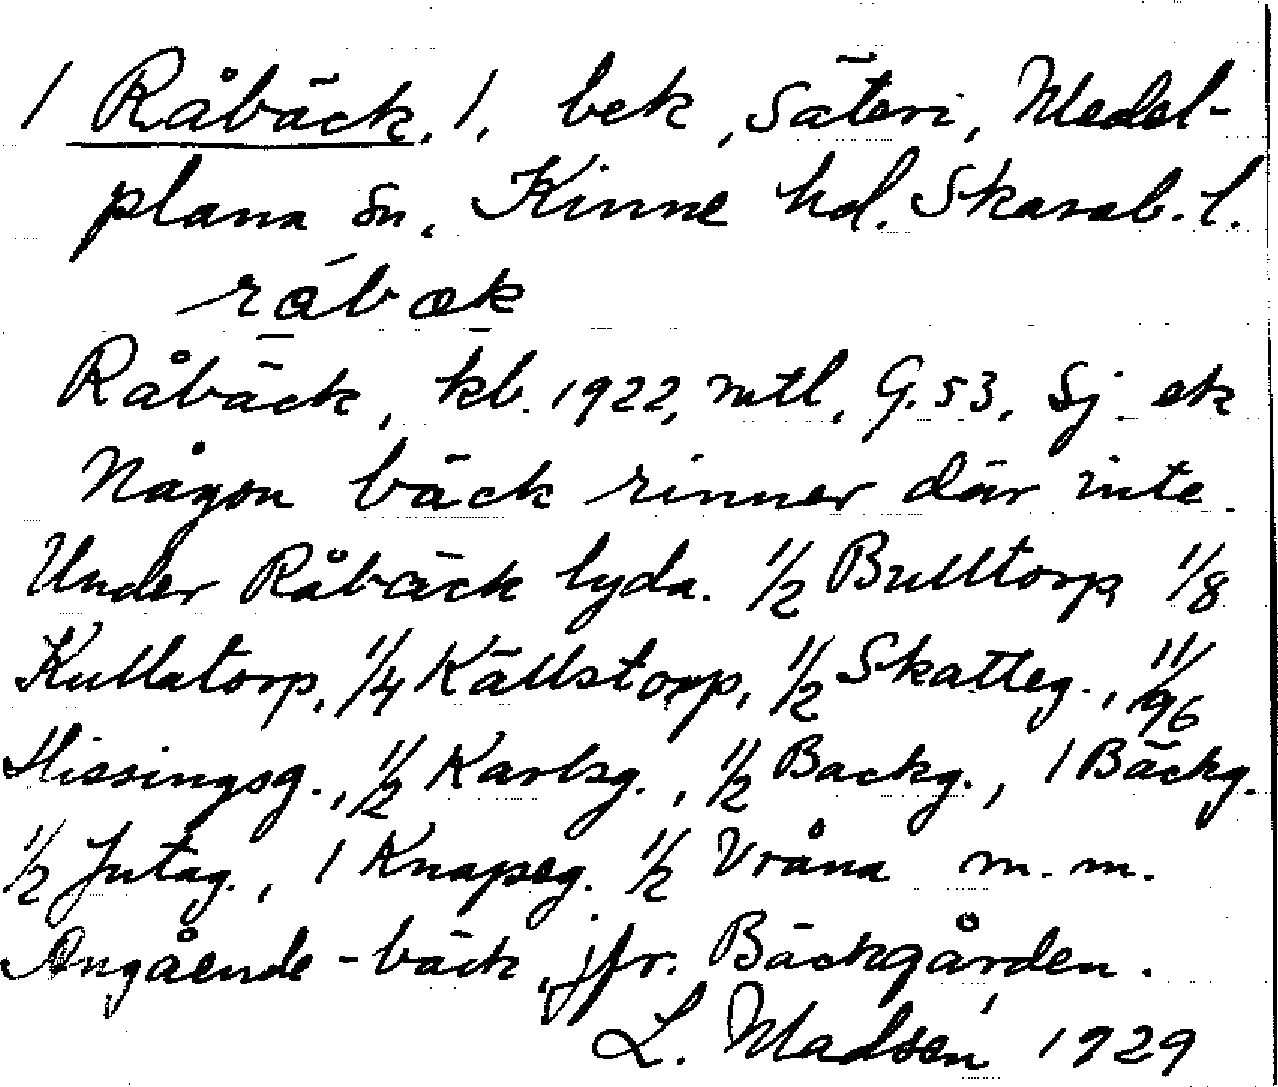 1 Råbäck, 1, bek, Säteri, Medel-
plana sn, Kinne hd. Skarab. l.
råbæk
Råbäck, kb. 1922, mtl, G. 53. Sj. ek
Någon bäck rinner där inte.
Under Råbäck lyda. 1/2 Bulltorp 1/8
Kullatorp, 1/4 Källstorp, 1/2 Skatteg., 11/96
Hissingsg., 1/2 Karlsg., 1/2 Backg., 1 Bäckg.
1/2 Jutag., 1 Knapeg. 1/2 Vråna m.m.
Angående -bäck, jfr. Bäckgården.
L. Madsén 1929